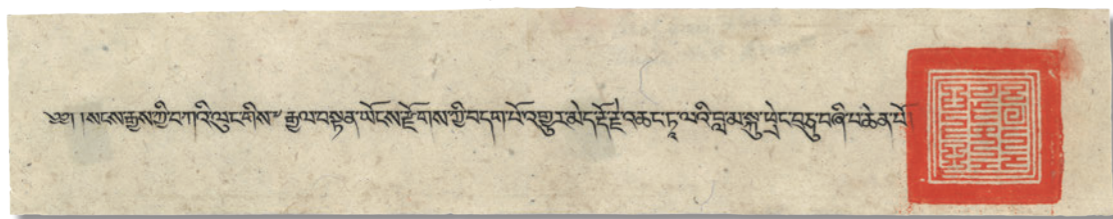 ༄༅། །སངས་རྒྱས་ཀྱི་བཀའི་ལུང་གིས་༸རྒྱལ་བསྟན་ཡོངས་རྫོགས་ཀྱི་བདག་པོ་འགྱུར་མེད་རྡོ་རྗེ་འཆང་ཏཱ་ལའི་བླ་མ་སྐུ་ཕྲེང་བཅུ་བཞི་པ་ཆེན་པོ།